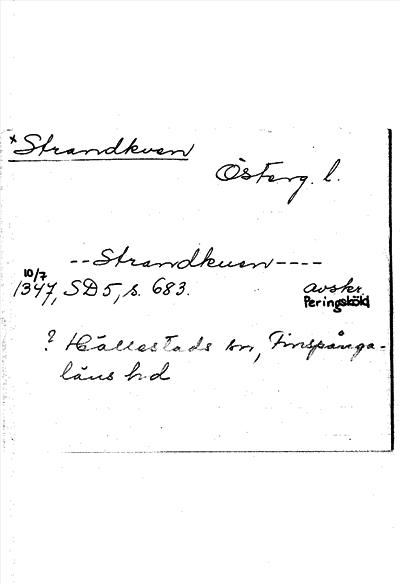 *Strandkven
Österg. l.
--Strandkuen----
10/7
1347, SD 5, s. 683. avskr.
Peringsköld
? Hällestads sn, Finspånga-
läns hd